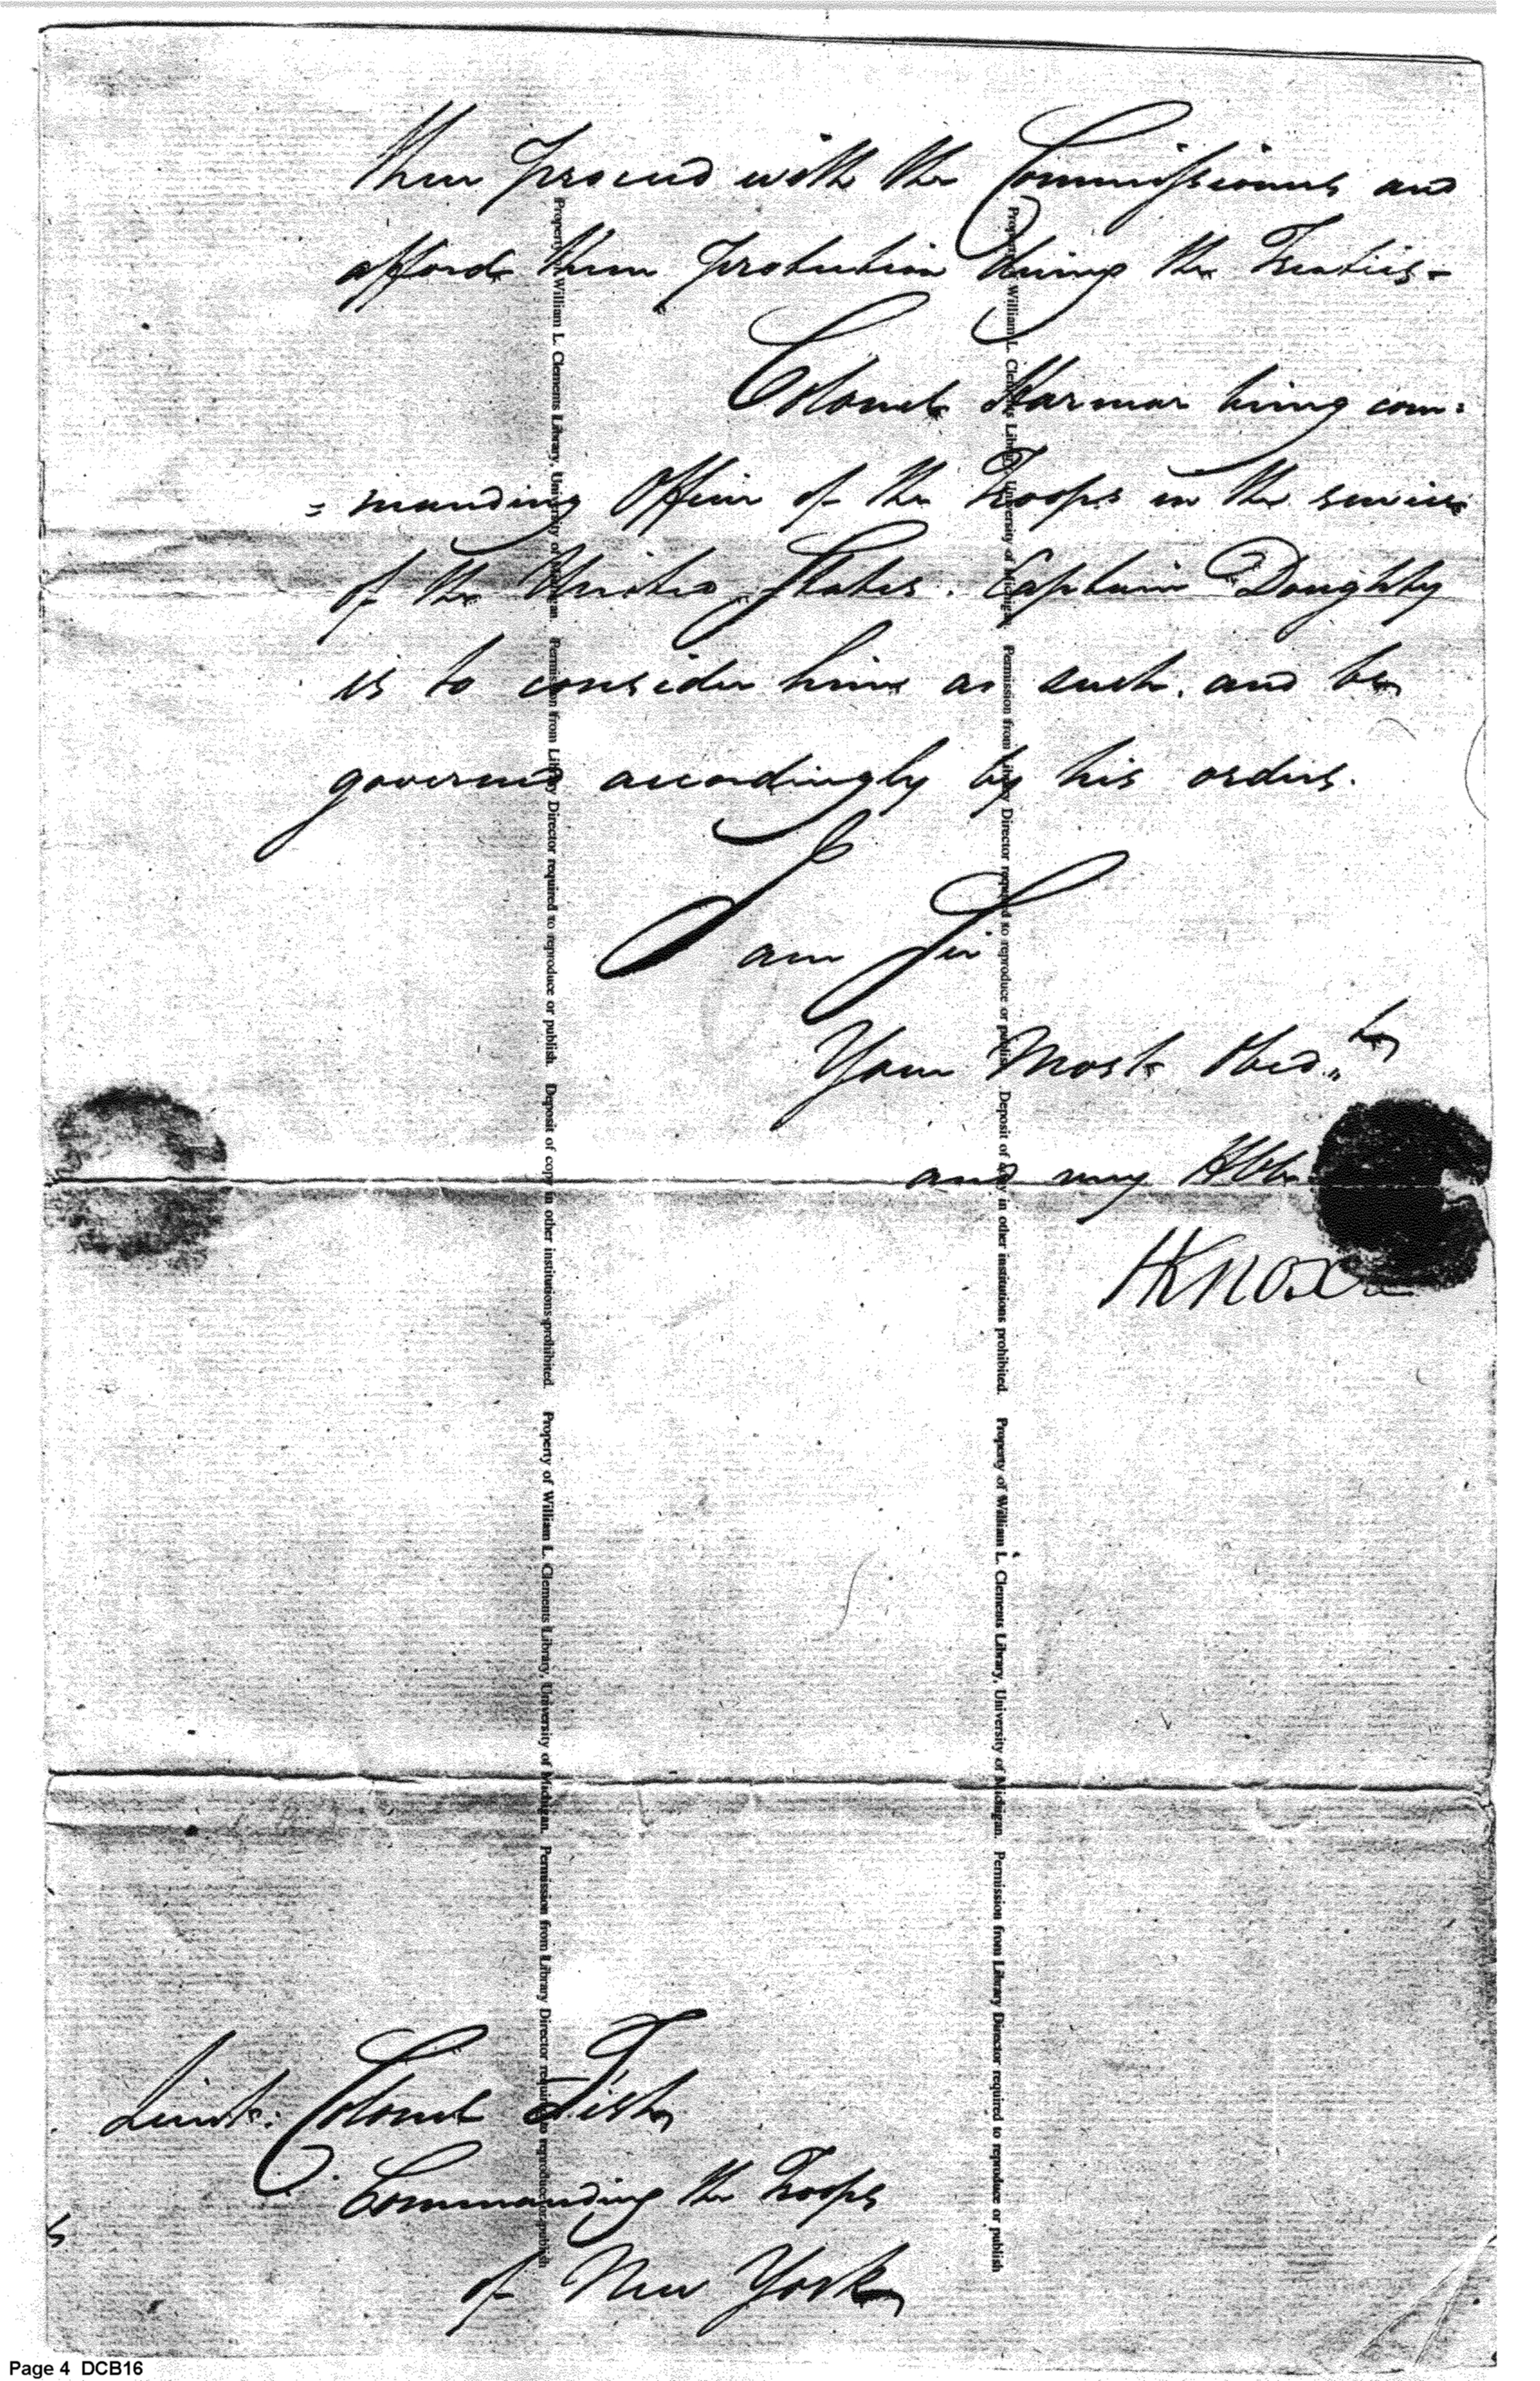 then proceed with the Commissioners and
afford them protection during the Treaties -
Colonel Harmar being com=
=manding Officer of the Troops in the service
of the United States. Captain Doughty
is to consider him as such, and be
governed accordingly by his orders.
I am Sir
Your Most Obed.,,t
and very Hble
HKnox
Lieut: Colonel Fish
Commanding the Troops
of New York
Property of William L. Clements Library, University of Michigan. Permission from Library Director required to reproduce or publish. Deposit of copy in other institutions prohibited. Property of William L. Clements Library, University of Michigan. Permission from Library Director required to reproduce or publish
Property of William L. Clements Library, University of Michigan. Permission from Library Director required to reproduce or publish. Deposit of copy in other institutions prohibited. Property of William L. Clements Library, University of Michigan. Permission from Library Director required to reproduce or publish
Page 4 DCB16